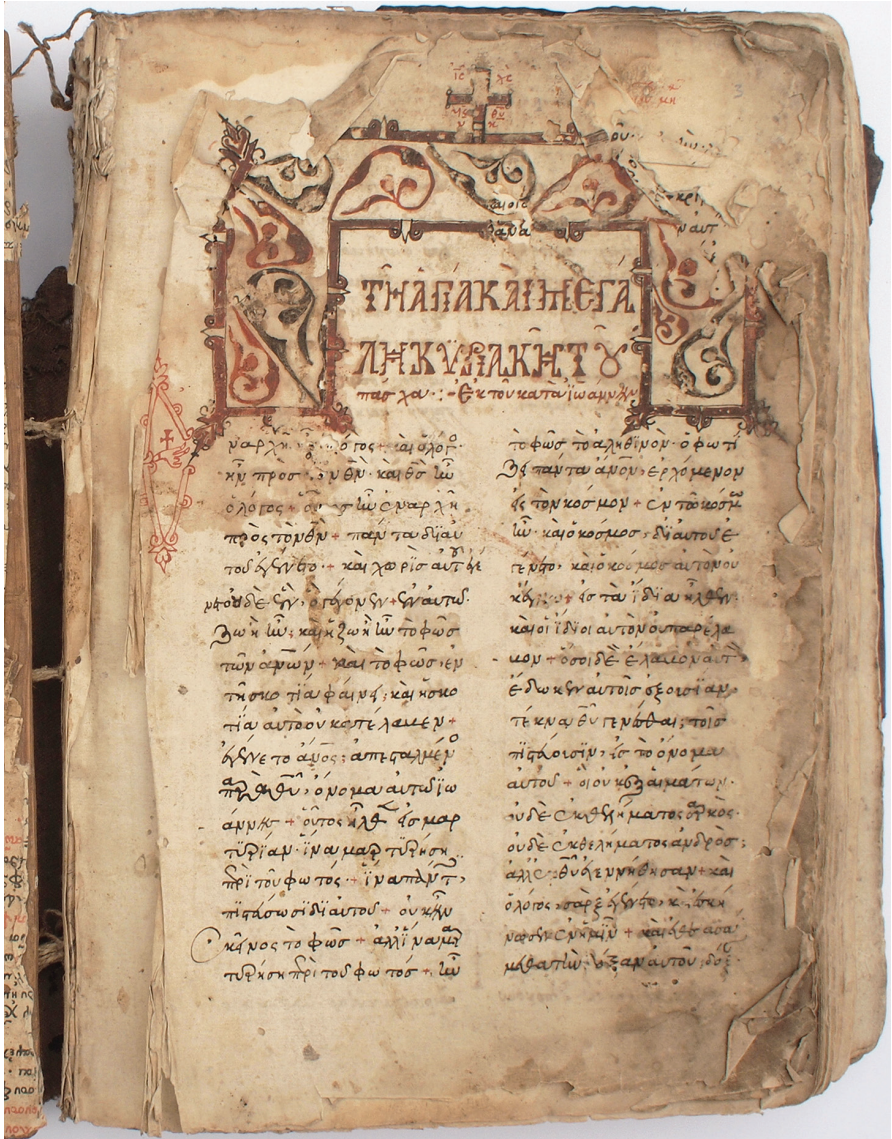 ΙΣ ΧΣ
ΤΗ ΑΓΙΑ ΚΑΙ ΜΕΓΑ
ΛΗ ΚΥΡΙΑΚΗ ΤΟΥ
πάσχα :- Ἐκ τοῦ κατὰ ἰωάννην
ναρχῆ λόγος + καὶ ὁ λόγος
ἦν προς θν· καὶ θς ἦν
ὁ λόγος + ἦν ἐν ἀρχῆ
πρὸς τὸν θν + πάντα δι αὐ
τοῦ ἐγένετο + καὶ χωρὶς αὐτοῦ ἐγέ
νετο οὐδὲ ἕν, ὃ γέγονεν + ἐν αὐτῶ
ζωὴ ἦν· καὶ ἡ ζωὴ ἦν τὸ φῶς
τῶν ἀνων + καὶ τὸ φῶς ἐν
τῆ σκοτία φαίνει· καὶ ἡ σκο
τία αὐτὸ οὐ κατέλαβεν +
ἐγένετο ἀνος· ἀπεσταλμένο
παρὰ θυ, ὄνομα αὐτῶ ἰω
άννης + οὗτος ἦλθεν εἰς μαρ
τυρίαν· ἵνα μαρτυρήση
περὶ τοῦ φωτός + ἵνα πάντ
πιστεύσωσι δι αὐτοῦ + οὐκ ἦν
κεῖνος τὸ φῶς + ἀλλ ἵνα μαρ
τυρήση περὶ τοῦ φωτός + ἦν
τὸ φῶς τὸ ἀληθινόν· ὃ φωτί
ζει πάντα ἀνον, ἐρχόμενον
εἰς τὸν κόσμον + ἐν τῶ κόσμω
ἦν· καὶ ὁ κόσμος δι αὐτοῦ ἐ
γένετο· καὶ ὁ κόσμος αὐτὸν οὐ
κ ἔγνω + εἰς τὰ ἴδια ἦλθεν
καὶ οἱ ἴδιοι αὐτὸν οὐ παρέλα
βον + ὅσοι δὲ ἔλαβον αὐτ
ἔδωκεν αὐτοῖς ἐξουσίαν
τέκνα θυ γενέσθαι· τοῖς
πιστεύουσιν, εἰς τὸ ὄνομα
αὐτοῦ + οἳ οὐκ ἐξ αἱμάτων·
οὐδὲ ἐκ θελήματος σαρκός·
οὐδὲ ἐκ θελήματος ἀνδρὸς·
ἀλλ ἐκ θυ ἐγεννήθησαν + καὶ
ὁ λόγος, σὰρξ ἐγένετο, καὶ ἐσκή
νωσεν ἐν ἡμῖν + καὶ ἐθεασά
μεθα τὴν δόξαν αὐτοῦ, δόξ